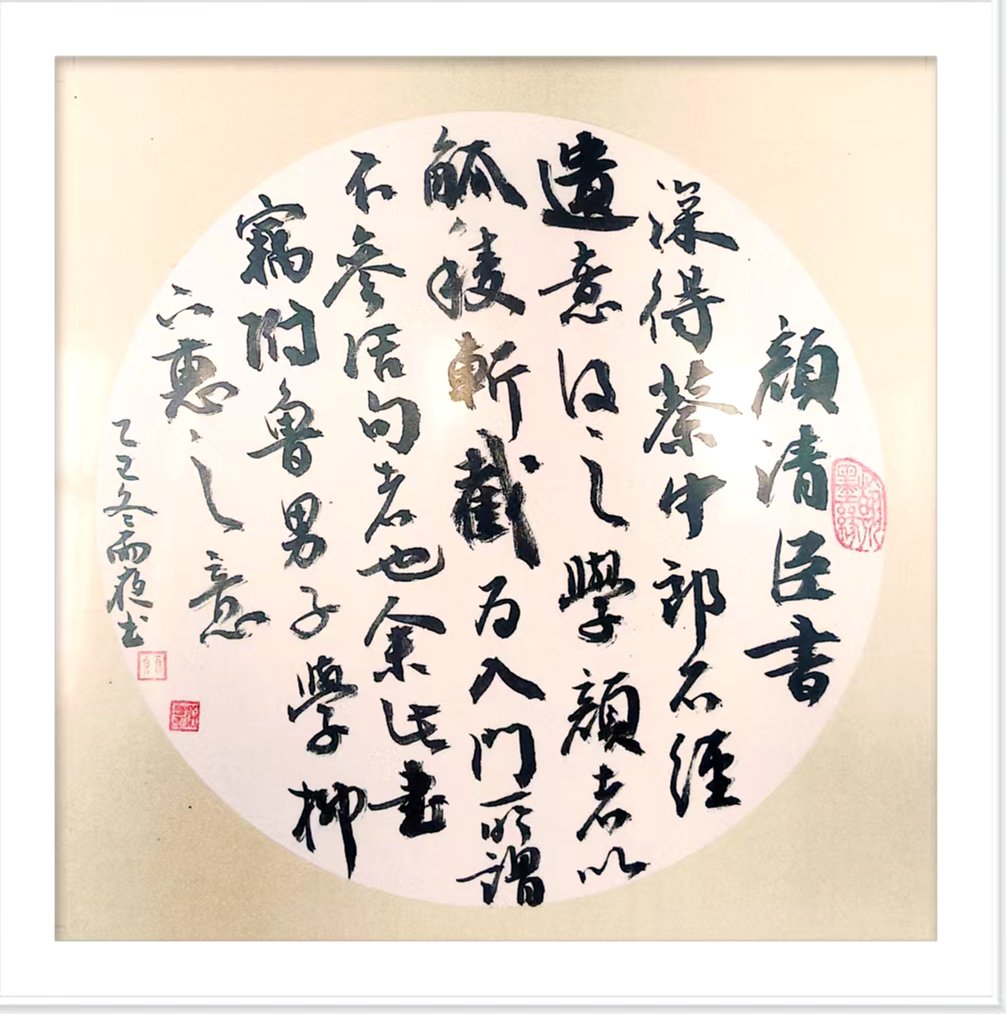 顏清臣書
深得蔡中郎石經
遺意後之學顏者以
觚稜斬截為入門所謂
不參活句者也余此書
竊附魯男子學柳
下惠之意
乙巳冬雨夜書